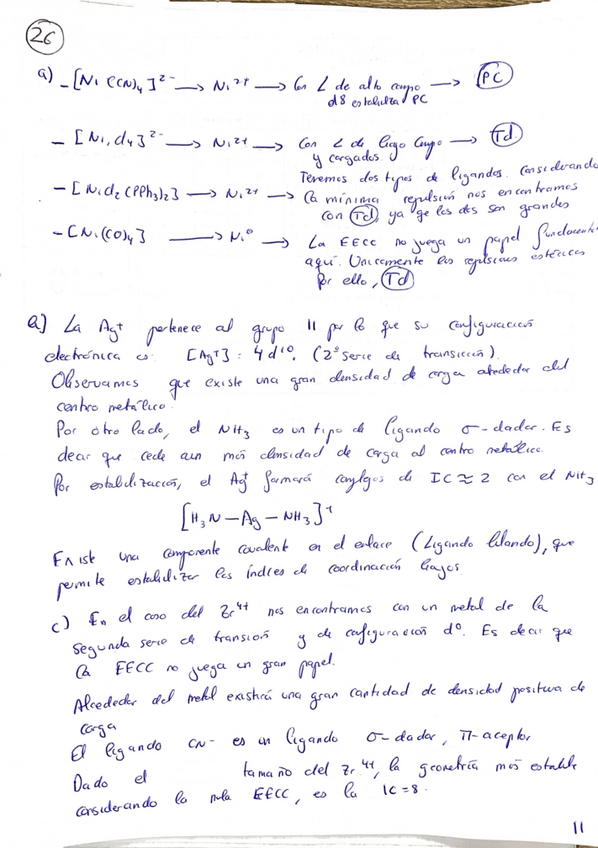 26
a) - [Ni(CN)4]2- → Ni2+ → Con L de alto campo → PC
d8 estabiliza PC
- [NiCl4]2- → Ni2+ → Con L de bajo campo → Td
y cargados.
Tenemos dos tipos de ligandos. Considerando
- [NiCl2(PPh3)2] → Ni2+ → la mínima repulsión nos encontramos
con Td, ya qe los dos son grandes
- [Ni(CO)4] → Ni0 → La EECC no juega un papel fundamental
aquí. Unicamente las repulsiones estéricas
Por ello, Td
b) La Ag+ pertenece al grupo 11 por lo que su configuración
electrónica es [Ag+]: 4d10. (2ª serie de transición).
Observamos que existe una gran densidad de carga alrededor del
centro metálico.
Por otro lado, el NH3 es un tipo de ligando σ-dador. Es
decir que cede aun más densidad de carga al centro metálico.
Por estabilización, el Ag+ formará complejos de IC ≈ 2 con el NH3
[H3N-Ag-NH3]+
Existe una componente covalente en el enlace (Ligando blando), que
permite estabilizar los índices de coordinación bajos
c) En el caso del Zr4+ nos encontramos con un metal de la
segunda serie de transión y de configuración d0. Es decir que
la EECC no juega un gran papel.
Alrededor del metal existirá una gran cantidad de densidad positiva de
carga
El ligando CN- es un ligando σ-dador, π-aceptor
Dado el tamaño del Zr4+, la geometría más estable
considerando la nula EECC, es la IC=8.
11